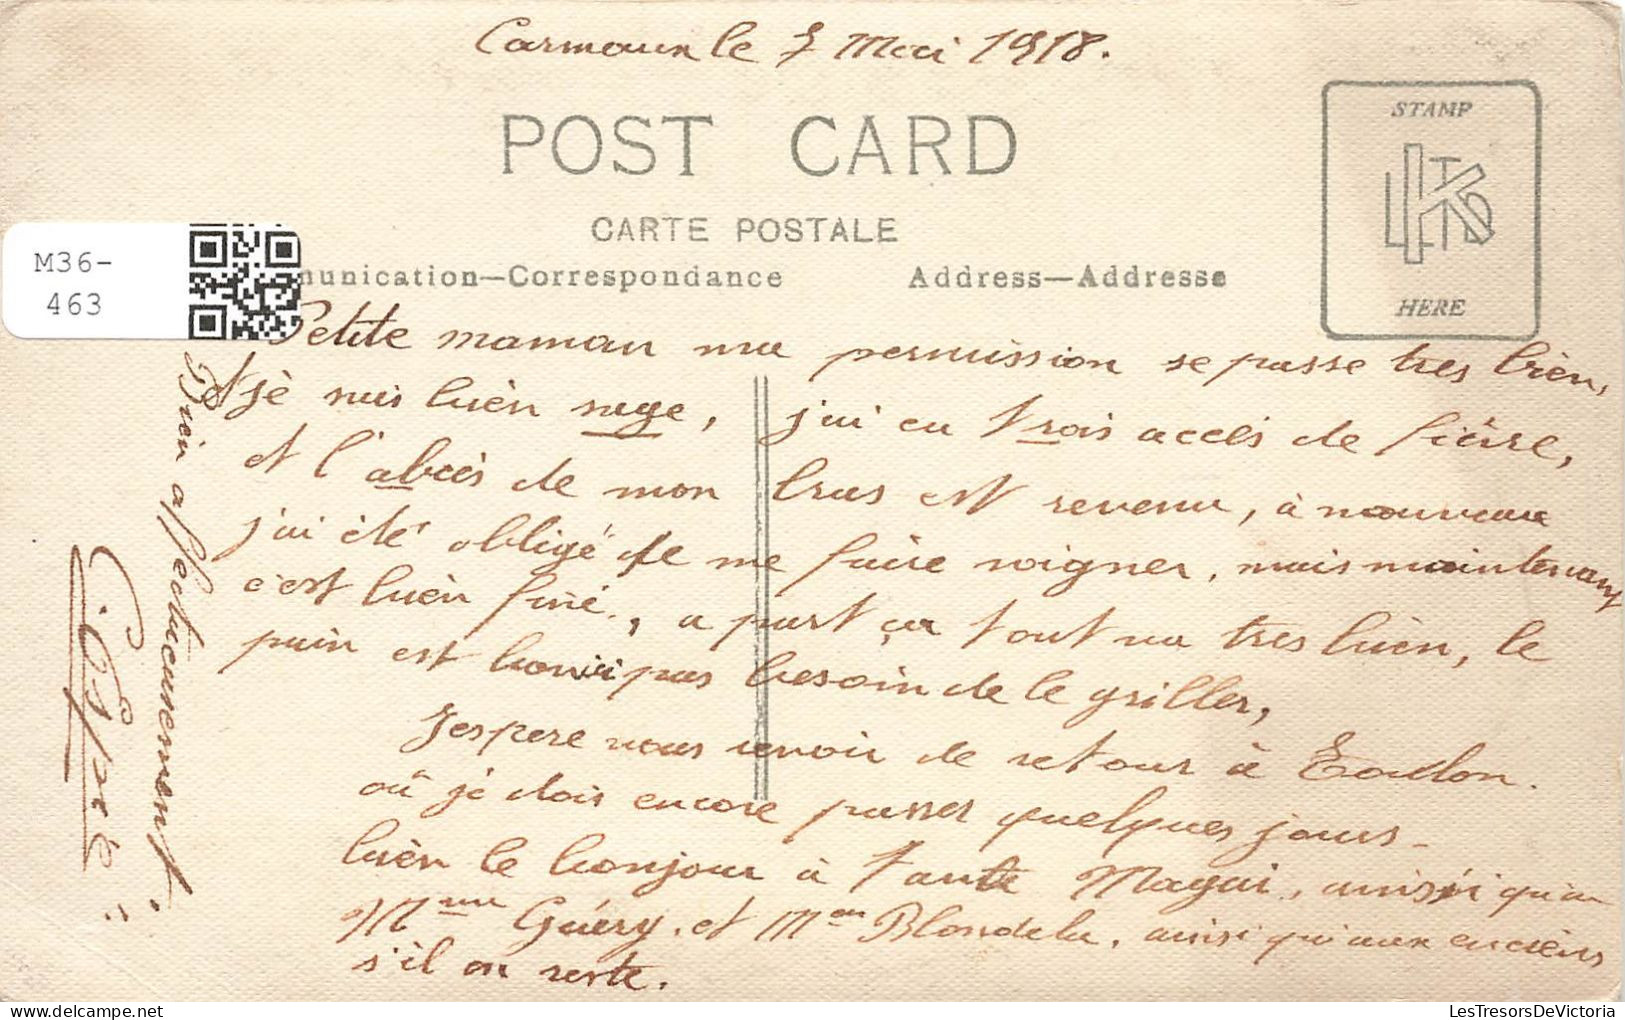 Carmaux le 7 Mai 1918.
POST CARD
STAMP
LKTD
HERE
CARTE POSTALE
M36-
463
munication—Correspondance
Address—Addresse
Petite maman ma permission se passe tres bièn,
je suis bièn sage, j'ai eu trois accès de fièvre,
et l'abcès de mon bras est revenu, à nouveau
j'ai été obligé de me faire soigner, mais maintenant
c'est bièn fini, a part ça tout va tres bièn, le
pain est bon pas besoin de le griller,
J'espere vous revoir de retour à Toulon.
où je dois encore passer quelques jours
bièn le bonjour à Tante Magui, ainsi qu'a
Mme Guéry, et Mme Blondela, ainsi qu'aux anciens
s'il en reste.
Bien affectueusement.
LesTresorsDeVictoria